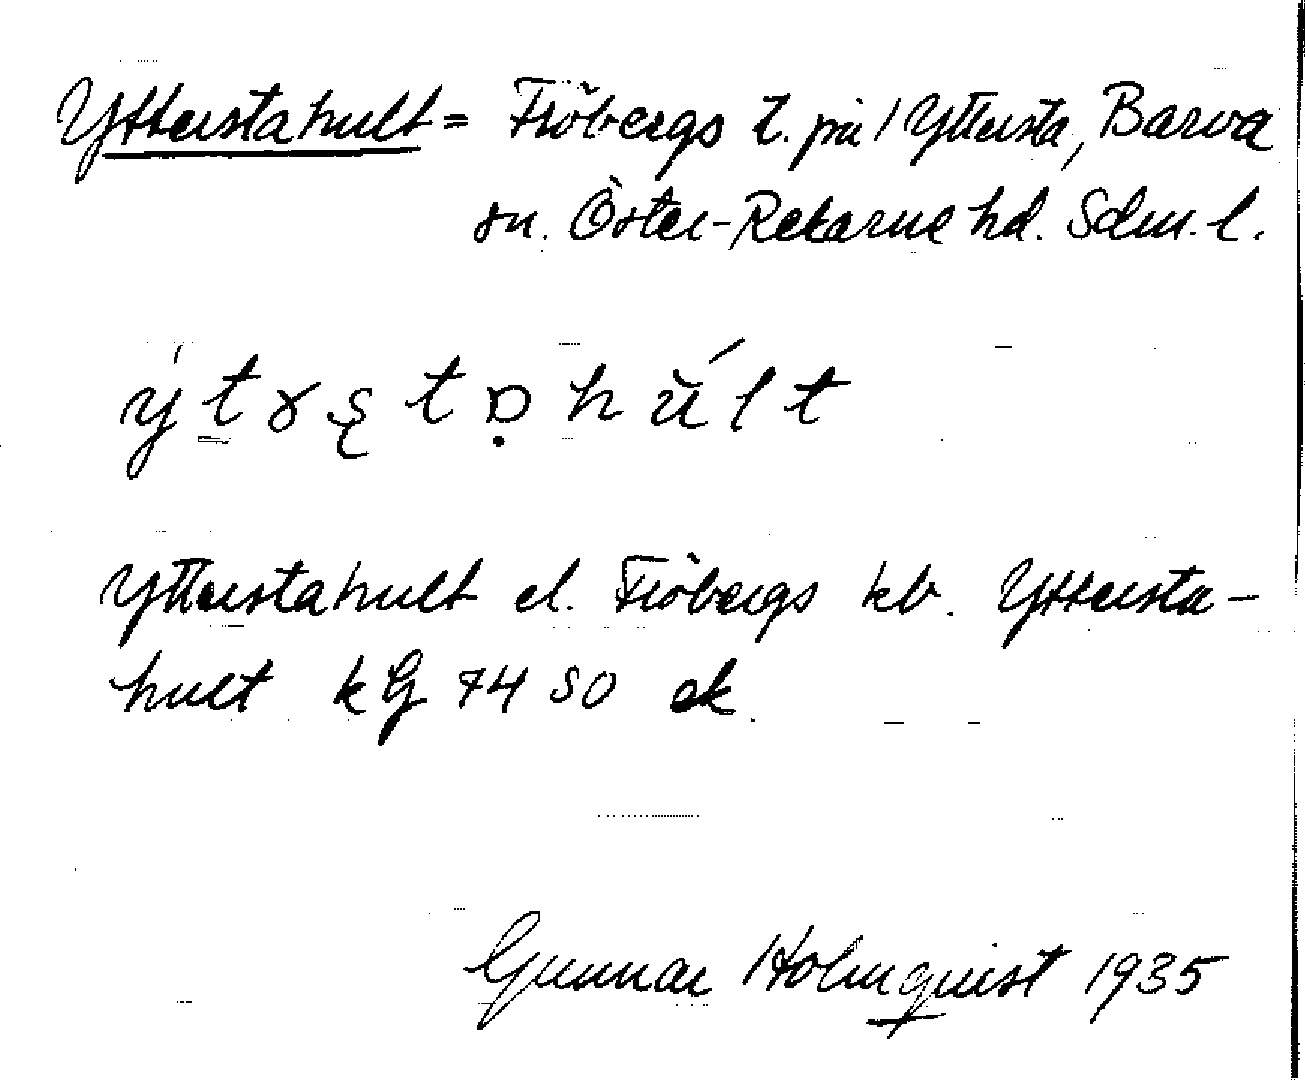 Ytterstahult = Fröbergs t. på / Yttersta, Barva
sn. Öster-Rekarne hd. Sdm. l.
Ytterstahult el. Fröbergs kb. Yttersta-
hult kG 7450 ek.
Gunnar Holmquist 1935